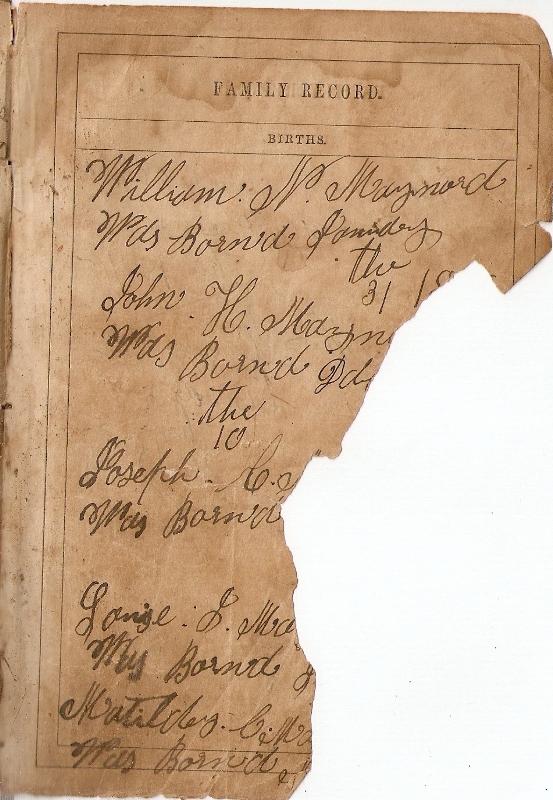 FAMILY RECORD.
BIRTHS.
William. N. Maynord
Was Born'd
the
31 18
John. H. Mayn
Was Born'd
the
10
Joseph. C.
Was Born'd
J. Ma
Was Born'd
Matildy. C. Ma
Was Born'd